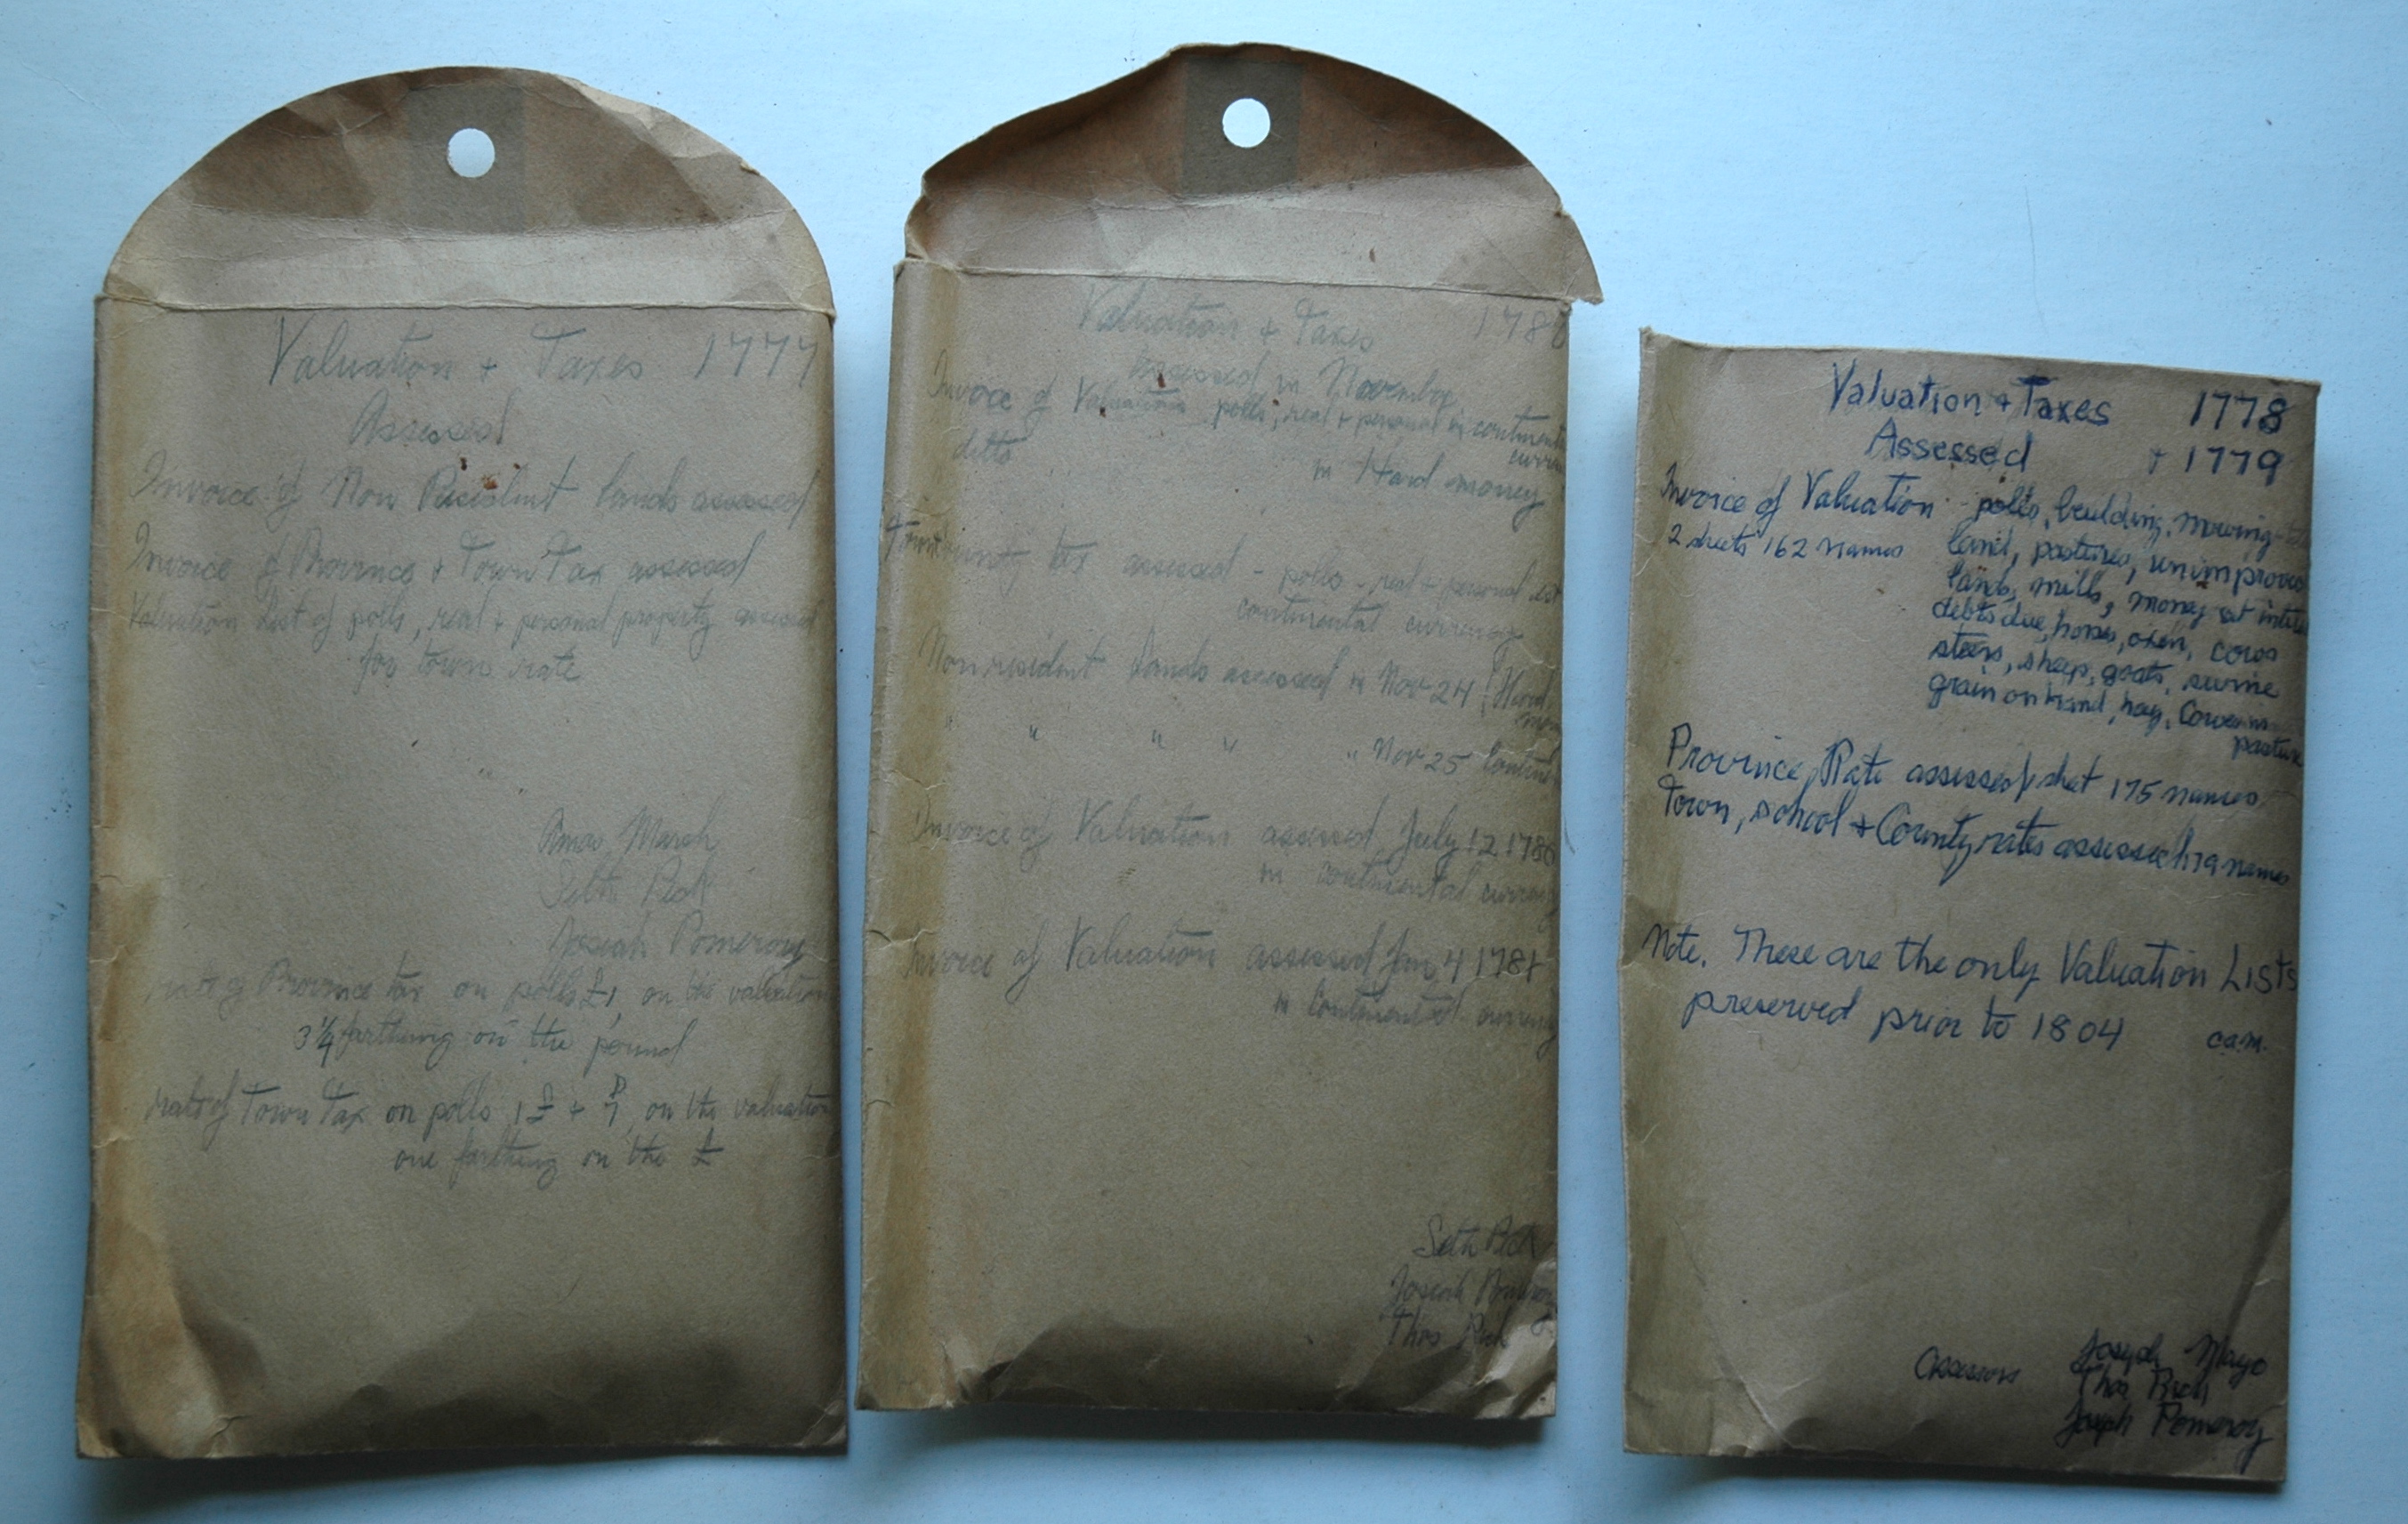 Valuation + Taxes 1777
Assessed
Invoice of Non Resident Lands assessed
Invoice of Province + Town Tax assessed
Valuation List of polls, real + personal property assessed
for town rate
Amos Marsh
Seth Peck
Josiah Pomeroy
rate of Province tax on polls £1, on the valuation
3 1/4 farthing on the pound
rate of Town Tax on polls 1£ + 7, on the valuation
one farthing on the £
Valuation + Taxes 1780
assessed in November
Invoice of Valuation polls, real + personal in continent
curren
ditto in Hard money
Town tax assessed - polls - real + personal est
continental currency
Non resident Lands assessed in Nov 24 Hard
mon
" " " " " Nov 25 Contin
Invoice of Valuation assessed July 12 1780
in continental currency
Invoice of Valuation assessed Jan 4 1781
in Continental currency
Seth Peck
Josiah Pomeroy
Thos Rich
Valuation + Taxes 1778
Assessed + 1779
Invoice of Valuation - polls, building, mowing
2 sheets 162 names land, pastures, unimproved
lands, mills, money at inter
debts due, horses, oxen, cows
steers, sheep, goats, swine
grain on hand, hay, Cows in
pasture
Province Rate assessed 1 sheet 175 names
Town, school + County rates assessed 179 names
Note. These are the only Valuation Lists
preserved prior to 1804 c.a.m.
Assessors Joseph Mayo
Thos Rich
Joseph Pomeroy